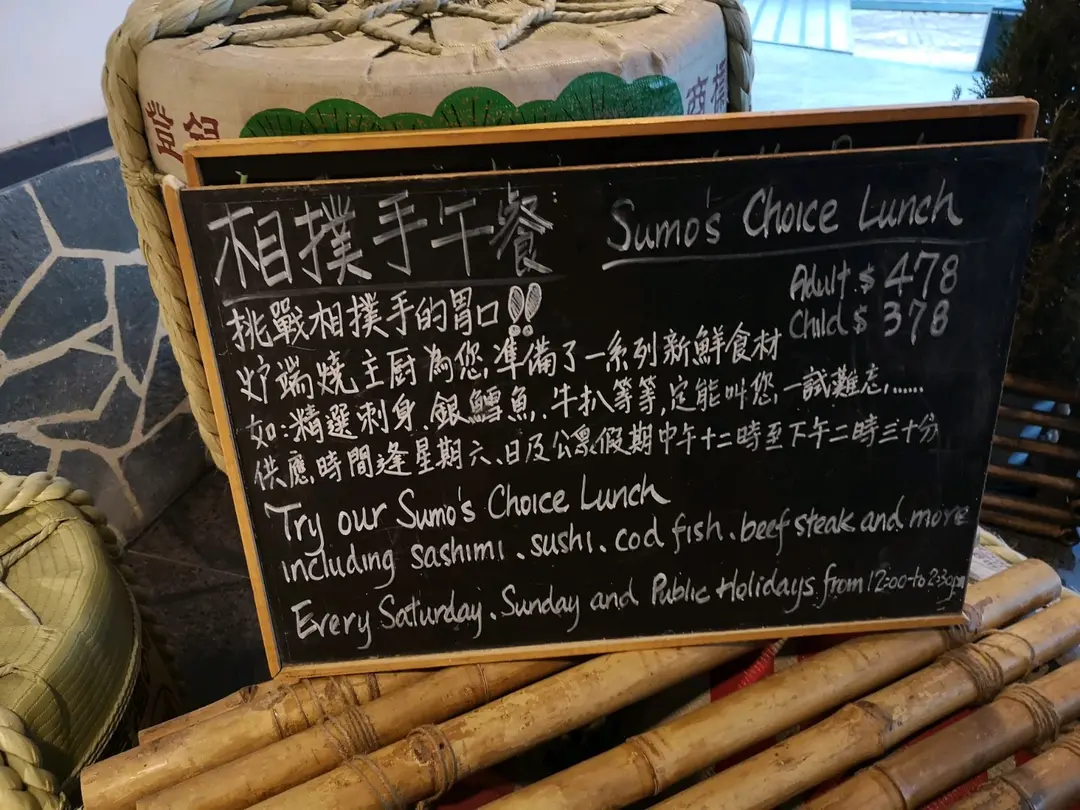 相撲手午餐: Sumo's Choice Lunch
Adult $ 478
Child $ 378
挑戰相撲手的胃口!!
炉端燒主厨為您準備了一系列新鮮食材
如:精選刺身.銀鱈魚.牛扒等等,定能叫您一試難忘......
供應時間逢星期六、日及公眾假期中午十二時至下午二時三十分
Try our Sumo's Choice Lunch
including sashimi.sushi.cod fish.beef steak and more
Every Saturday.Sunday and Public Holidays from 12:00 to 2:30pm